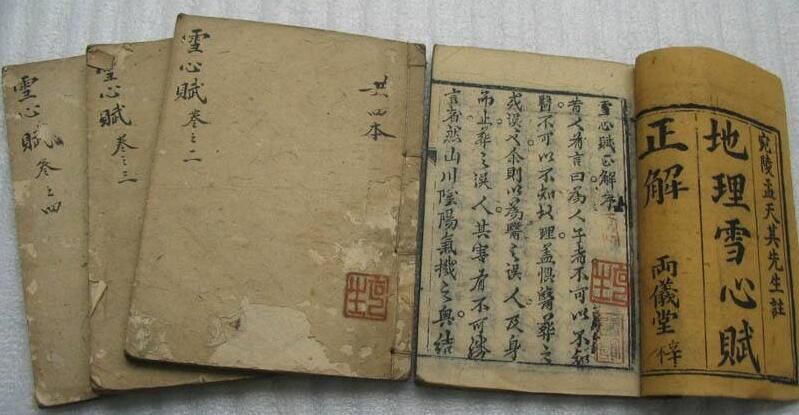 宛陵孟天其先生註
地理雪心賦
正解
兩儀堂梓
雪心賦正解序
昔人有言曰為人子者不可以不知
醫不可以不知地理蓋惧醫葬之
或误也余則以為醫之误人及身
而止葬之误人其害有不可勝
言者然山川陰陽氣機之奥結
共四本
雪心賦卷之二
雪心賦卷之三
雪心賦卷之四